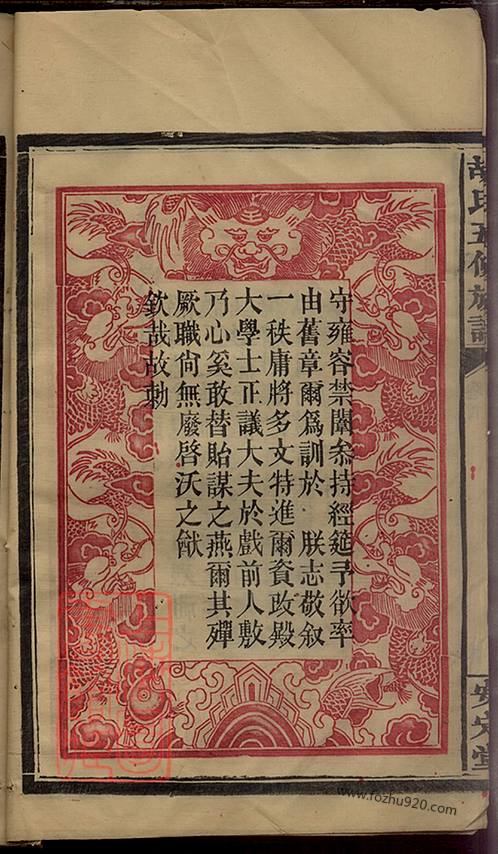 守雍容禁闥叅持經筵予欲率
由舊章爾爲訓於 朕志敬叙
一秩庸將多文特進爾資政殿
大學士正議大夫於戲前人敷
乃心奚敢替貽謀之燕爾其殫
厥職尙無廢啓沃之猷
欽哉故勅
胡氏五修族譜
安定堂
www.fozhu920.com